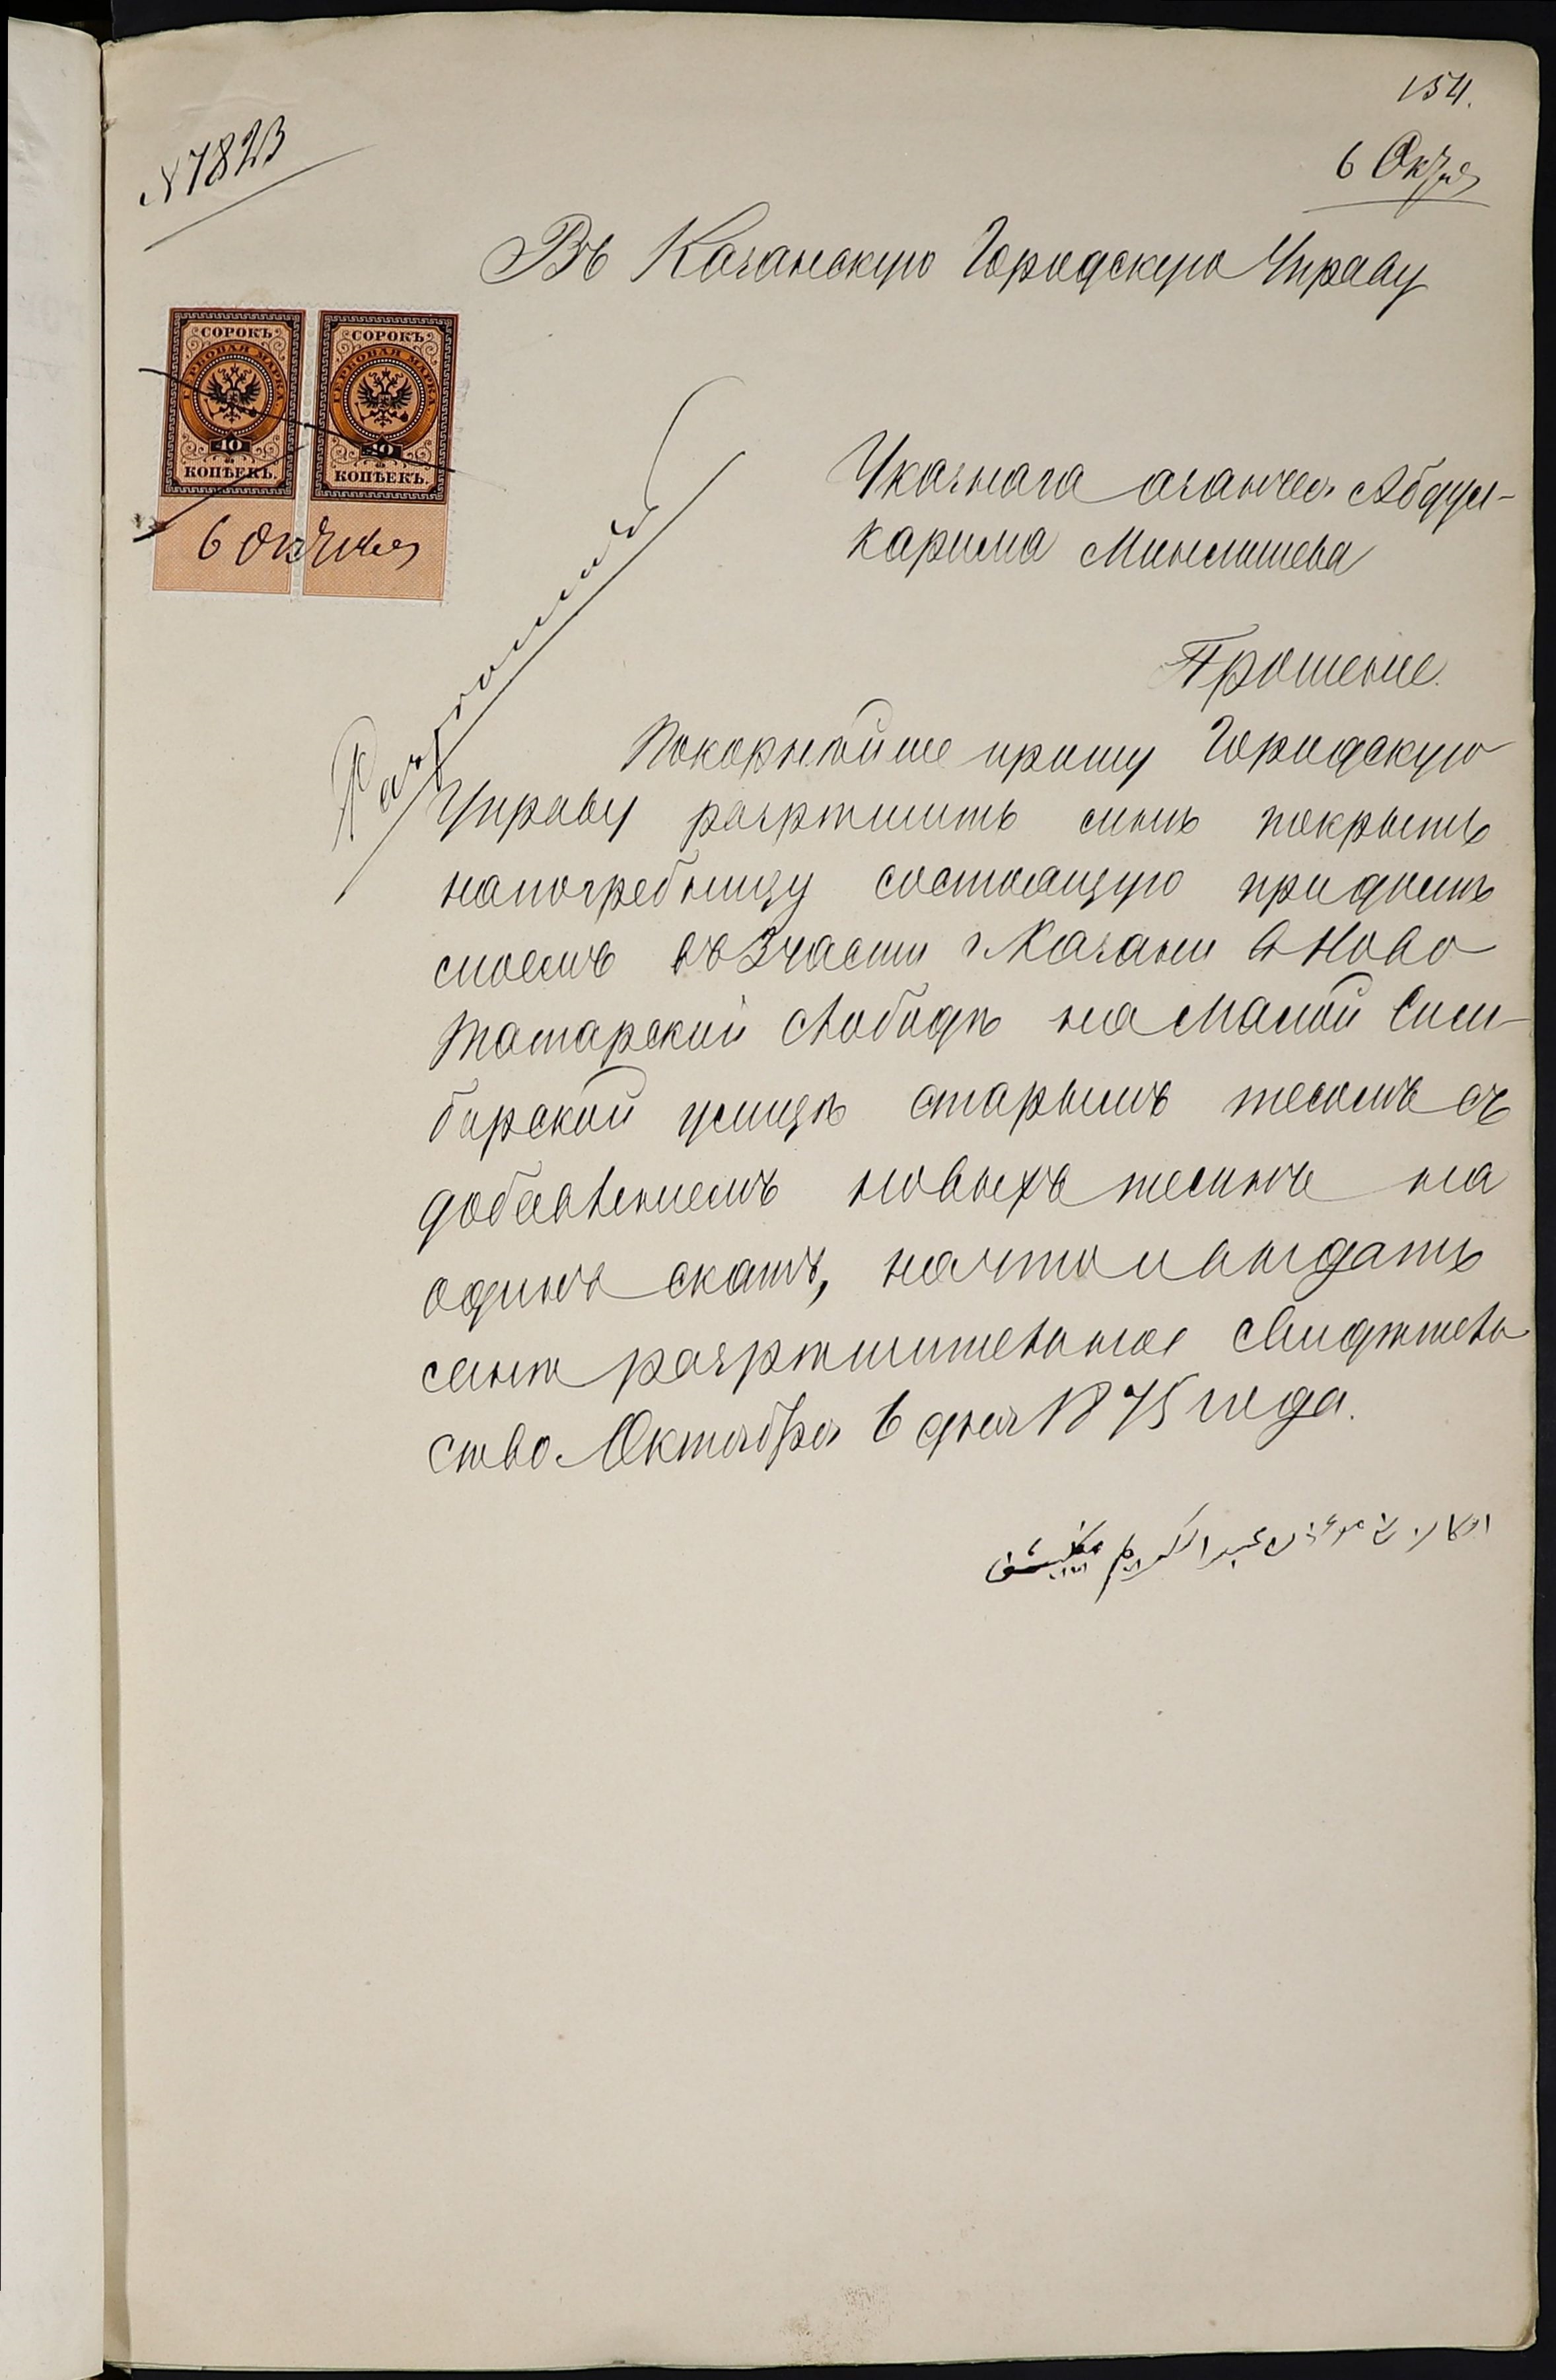 154.
№ 7823
6 Окт
Въ Казанскую Городскую Управу
СОРОКЪ
ГЕРБОВАЯ МАРКА
40
КОПѢЕКЪ.
СОРОКЪ
ГЕРБОВАЯ МАРКА
40
КОПѢЕКЪ.
6 Октября
Указнага азанчея Абдул-
карима Минглишева
Прошение.
Покорнѣйше прошу Городскую
Управу разрѣшить мнѣ покрыть
напогребницу состоящую при домѣ
моемъ въ 3 части г Казани в Ново
Татарской слободѣ на Малой Сим-
бирской улицѣ старымъ тесомъ съ
добавленiемъ новыхъ тесинъ на
одинъ скатъ, на что и выдать
мнѣ разрѣшительное свидѣтель
ство. Октября 6 дня 1875 года.
عبد الكريم